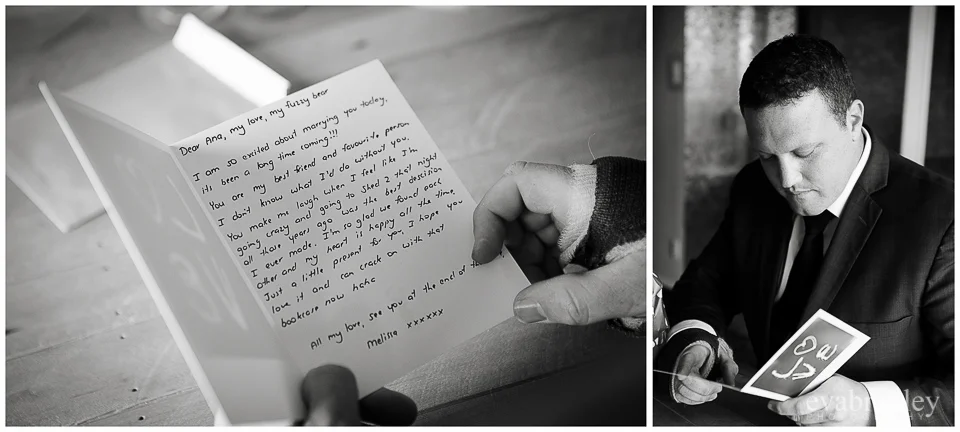 Dear Ana, my love, my fuzzy bear
I am so excited about marrying you today,
its been a long time coming!!!
You are my best friend and favourite person
I don't know what I'd do without you.
You make me laugh when I feel like I'm
going crazy and going to Shed 2 that night
all those years ago was the best descision
I ever made. I'm so glad we found each
other and my heart is happy all the time.
Just a little present for you, I hope you
love it and can crack on with that
bookcase now haha
All my love, see you at the end of
Melissa xxxxxx